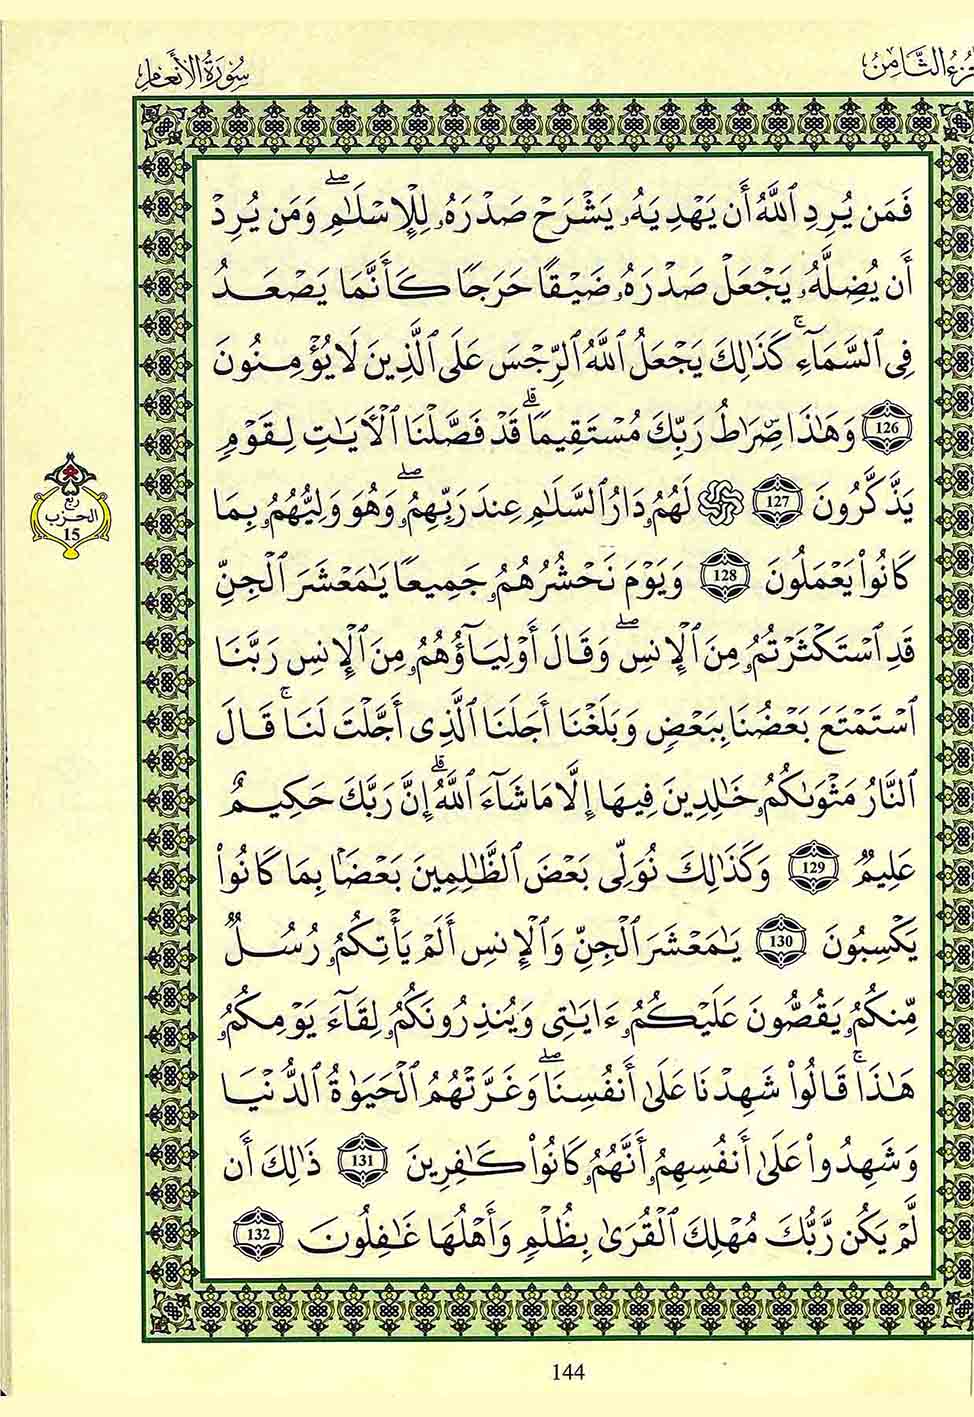 جزء الثامن
سورة الأنعام
فَمَن يُرِدِ ٱللَّهُ أَن يَهْدِيَهُۥ يَشْرَحْ صَدْرَهُۥ لِلْإِسْلَٰمِۖ وَمَن يُرِدْ
أَن يُضِلَّهُۥ يَجْعَلْ صَدْرَهُۥ ضَيْقًا حَرَجًا كَأَنَّمَا يَصْعَدُ
فِى ٱلسَّمَآءِۚ كَذَٰلِكَ يَجْعَلُ ٱللَّهُ ٱلرِّجْسَ عَلَى ٱلَّذِينَ لَا يُؤْمِنُونَ
126 وَهَٰذَا صِرَٰطُ رَبِّكَ مُسْتَقِيمًاۗ قَدْ فَصَّلْنَا ٱلْأَيَٰتِ لِقَوْمٍ
يَذَّكَّرُونَ 127 ۞ لَهُمُۥ دَارُ ٱلسَّلَٰمِ عِندَ رَبِّهِمُۥۖ وَهُوَ وَلِيُّهُمُۥ بِمَا
كَانُوا۟ يَعْمَلُونَ 128 وَيَوْمَ نَحْشُرُهُمُۥ جَمِيعًا يَٰمَعْشَرَ ٱلْجِنِّ
قَدِ ٱسْتَكْثَرْتُمُۥ مِنَ ٱلْإِنسِۖ وَقَالَ أَوْلِيَآؤُهُمُۥ مِنَ ٱلْإِنسِ رَبَّنَا
ٱسْتَمْتَعَ بَعْضُنَا بِبَعْضٍ وَبَلَغْنَا أَجَلَنَا ٱلَّذِى أَجَّلْتَ لَنَاۚ قَالَ
ٱلنَّارُ مَثْوَىٰكُمُۥ خَٰلِدِينَ فِيهَا إِلَّا مَا شَآءَ ٱللَّهُۗ إِنَّ رَبَّكَ حَكِيمٌ
عَلِيمٌ 129 وَكَذَٰلِكَ نُوَلِّى بَعْضَ ٱلظَّٰلِمِينَ بَعْضًۢا بِمَا كَانُوا۟
يَكْسِبُونَ 130 يَٰمَعْشَرَ ٱلْجِنِّ وَٱلْإِنسِ أَلَمْ يَأْتِكُمُۥ رُسُلٌ
مِّنكُمُۥ يَقُصُّونَ عَلَيْكُمُۥ ءَايَٰتِى وَيُنذِرُونَكُمُۥ لِقَآءَ يَوْمِكُمُۥ
هَٰذَاۚ قَالُوا۟ شَهِدْنَا عَلَىٰ أَنفُسِنَاۖ وَغَرَّتْهُمُ ٱلْحَيَوٰةُ ٱلدُّنْيَا
وَشَهِدُوا۟ عَلَىٰ أَنفُسِهِمُۥ أَنَّهُمُۥ كَانُوا۟ كَٰفِرِينَ 131 ذَٰلِكَ أَن
لَّمْ يَكُن رَّبُّكَ مُهْلِكَ ٱلْقُرَىٰ بِظُلْمٍ وَأَهْلُهَا غَٰفِلُونَ 132
ربع
الحزب
15
144